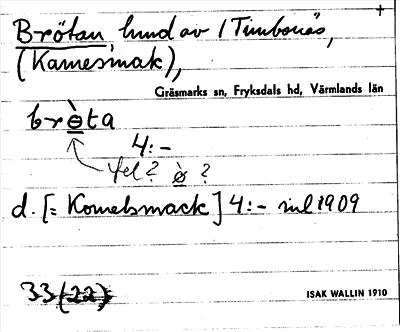 Brötan hund av /Timbonäs,
(Kamesmak),
Gräsmarks sn, Fryksdals hd, Värmlands län
brөta
4:-
fel? ? 
d. [= Komelsmack] 4:- 1909
33 (22)
ISAK WALLIN 1910